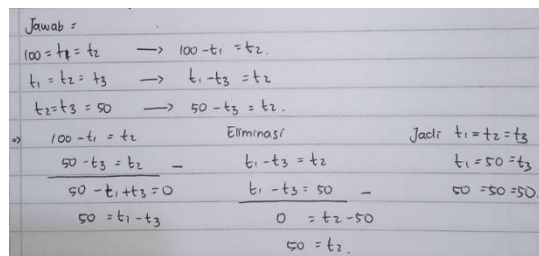 Jawab =
100 = t1 = t2 → 100 - t1 = t2.
t1 = t2 = t3 → t1 - t3 = t2
t2 = t3 = 50 → 50 - t3 = t2.
⇒ 100 - t1 = t2
50 - t3 = t2 -
50 - t1 + t3 = 0
50 = t1 - t3
Eliminasi
t1 - t3 = t2
t1 - t3 = 50 -
0 = t2 - 50
50 = t2.
Jadi t1 = t2 = t3
t1 = 50 = t3
50 = 50 = 50.